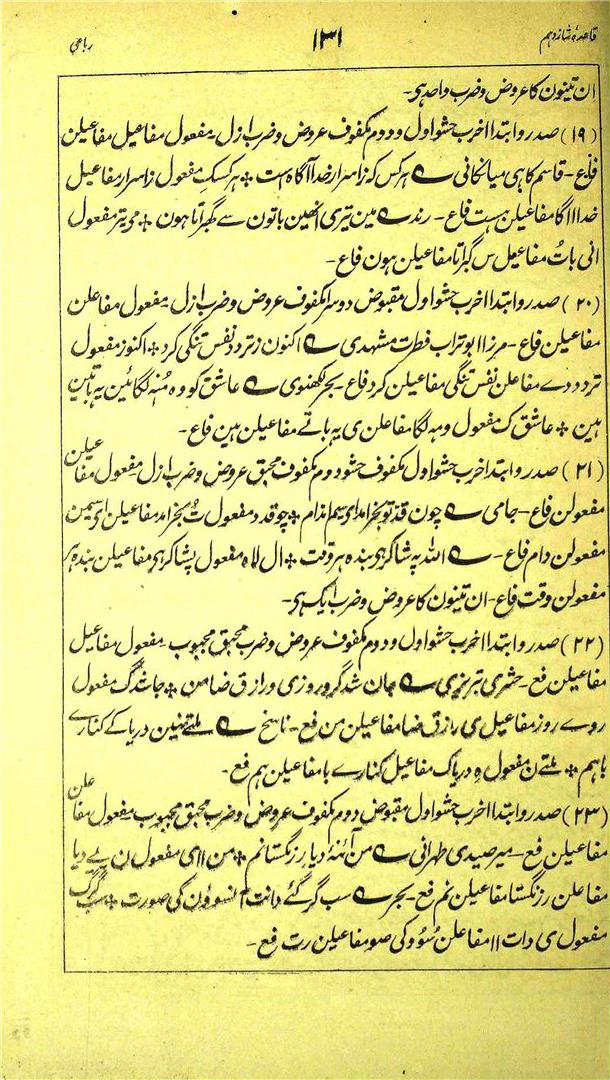 قاعدۂ شانزدہم ۱۳۱ رباعی
ان تینون کا عروض و ضرب واحد ہی۔
(۱۹) صدر و ابتدا اخرب حشو اول و دوم مکفوف عروض و ضرب ازل۔ مفعول مفاعیل مفاعیلن
فاع۔ قاسم کاہی میانکالی ؎ ہر کس کہ ز اسرار خدا آگاہ است * ہر کسک مفعول ز اسرار مفاعیل
خدا ا ا گا مفاعیلن ہست فاع۔ رند ؎ مین تیری انھین باتون سے گھبراتا ہون * می تیر مفعول
انی بات مفاعیل س گبراتا مفاعیلن ہون فاع۔
(۲۰) صدر و ابتدا اخرب حشو اول مقبوض دوسرا مکفوف عروض و ضرب ازل۔ مفعول مفاعلن
مفاعیلن فاع۔ مرزا ابوتراب فطرت مشہدی ؎ اکنون ز تردد نفس تنگی کرد * اکنوز مفعول
تردد دے مفاعلن نفس تنگی مفاعیلن کرد فاع۔ بحر لکھنوی ؎ عاشق کو وہ منہ لگائین یہ باتین
ہین * عاشق ک مفعول و مہ لگا مفاعلن ی یہ باتے مفاعیلن ہین فاع۔
(۲۱) صدر و ابتدا خرب حشو اول مکفوف حشو دوم مکفوف محبق عروض و ضرب ازل۔ مفعول مفاعیلن
مفعولن فاع۔ جامی ؎ چون قد تو بخرامد ای سیم اندام * چو قدد مفعول ت بخرامد مفاعیلن ای سیمن
مفعولن دام فاع۔ ؎ اللہ پہ شاکر ہی بندہ ہر وقت * ال لاہ مفعول پشاکر ہی مفاعیلن بندہ ہر
مفعولن وقت فاع۔ ان تینون کا عروض و ضرب ایک ہی۔
(۲۲) صدر و ابتدا اخرب حشو اول و دوم مکفوف عروض و ضرب محبق مجبوب۔ مفعول مفاعیل
مفاعیلن فع۔ تبریزی ؎ جان شد گرو روزی و رازق ضامن * جاشد گ مفعول
روے روز مفاعیل ی رازق ضا مفاعیلن من فع۔ ناسخ ؎ ملتے نہین دریا کے کنارے
باہم * ملتے ن مفعول ہ دریاک مفاعیل کنارے با مفاعیلن ہم فع۔
(۲۳) صدر و ابتدا اخرب حشو اول مقبوض دوم مکفوف عروض و ضرب محبق مجبوب۔ مفعول مفاعلن
مفاعیلن فع۔ میر صیدی طہرانی ؎ من آئنۂ دیار زنگستانم * من ا ا ی مفعول ن یے دیا
مفاعلن ر زنگستا مفاعیلن نم فع۔ بحر ؎ سب گر گئے دانت آنسوؤن کی صورت * سب گرگ
مفعول ی دات ا ا مفاعلن سُوُو کی صو مفاعیلن رت فع۔